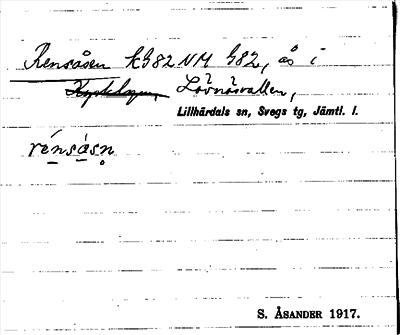 Rensåsen kG82NM G82, ås i
Lövnäsvallen,
Lillhärdals sn, Svegs tg, Jämtl. l.
rénsåsn̥
S. ÅSANDER 1917.